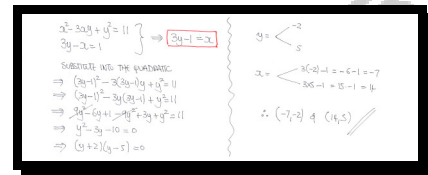 x² - 3xy + y² = 11
3y - x = 1
⇒ 3y - 1 = x
SUBSTITUTE INTO THE QUADRATIC
⇒ (3y-1)² - 3(3y-1)y + y² = 11
⇒ (3y-1)² - 3y(3y-1) + y² = 11
⇒ 9y² - 6y + 1 - 9y² + 3y + y² = 11
⇒ y² - 3y - 10 = 0
⇒ (y+2)(y-5) = 0
y = < -2
5
x = < 3(-2)-1 = -6-1 = -7
3×5-1 = 15-1 = 14
∴ (-7,-2) & (14,5)